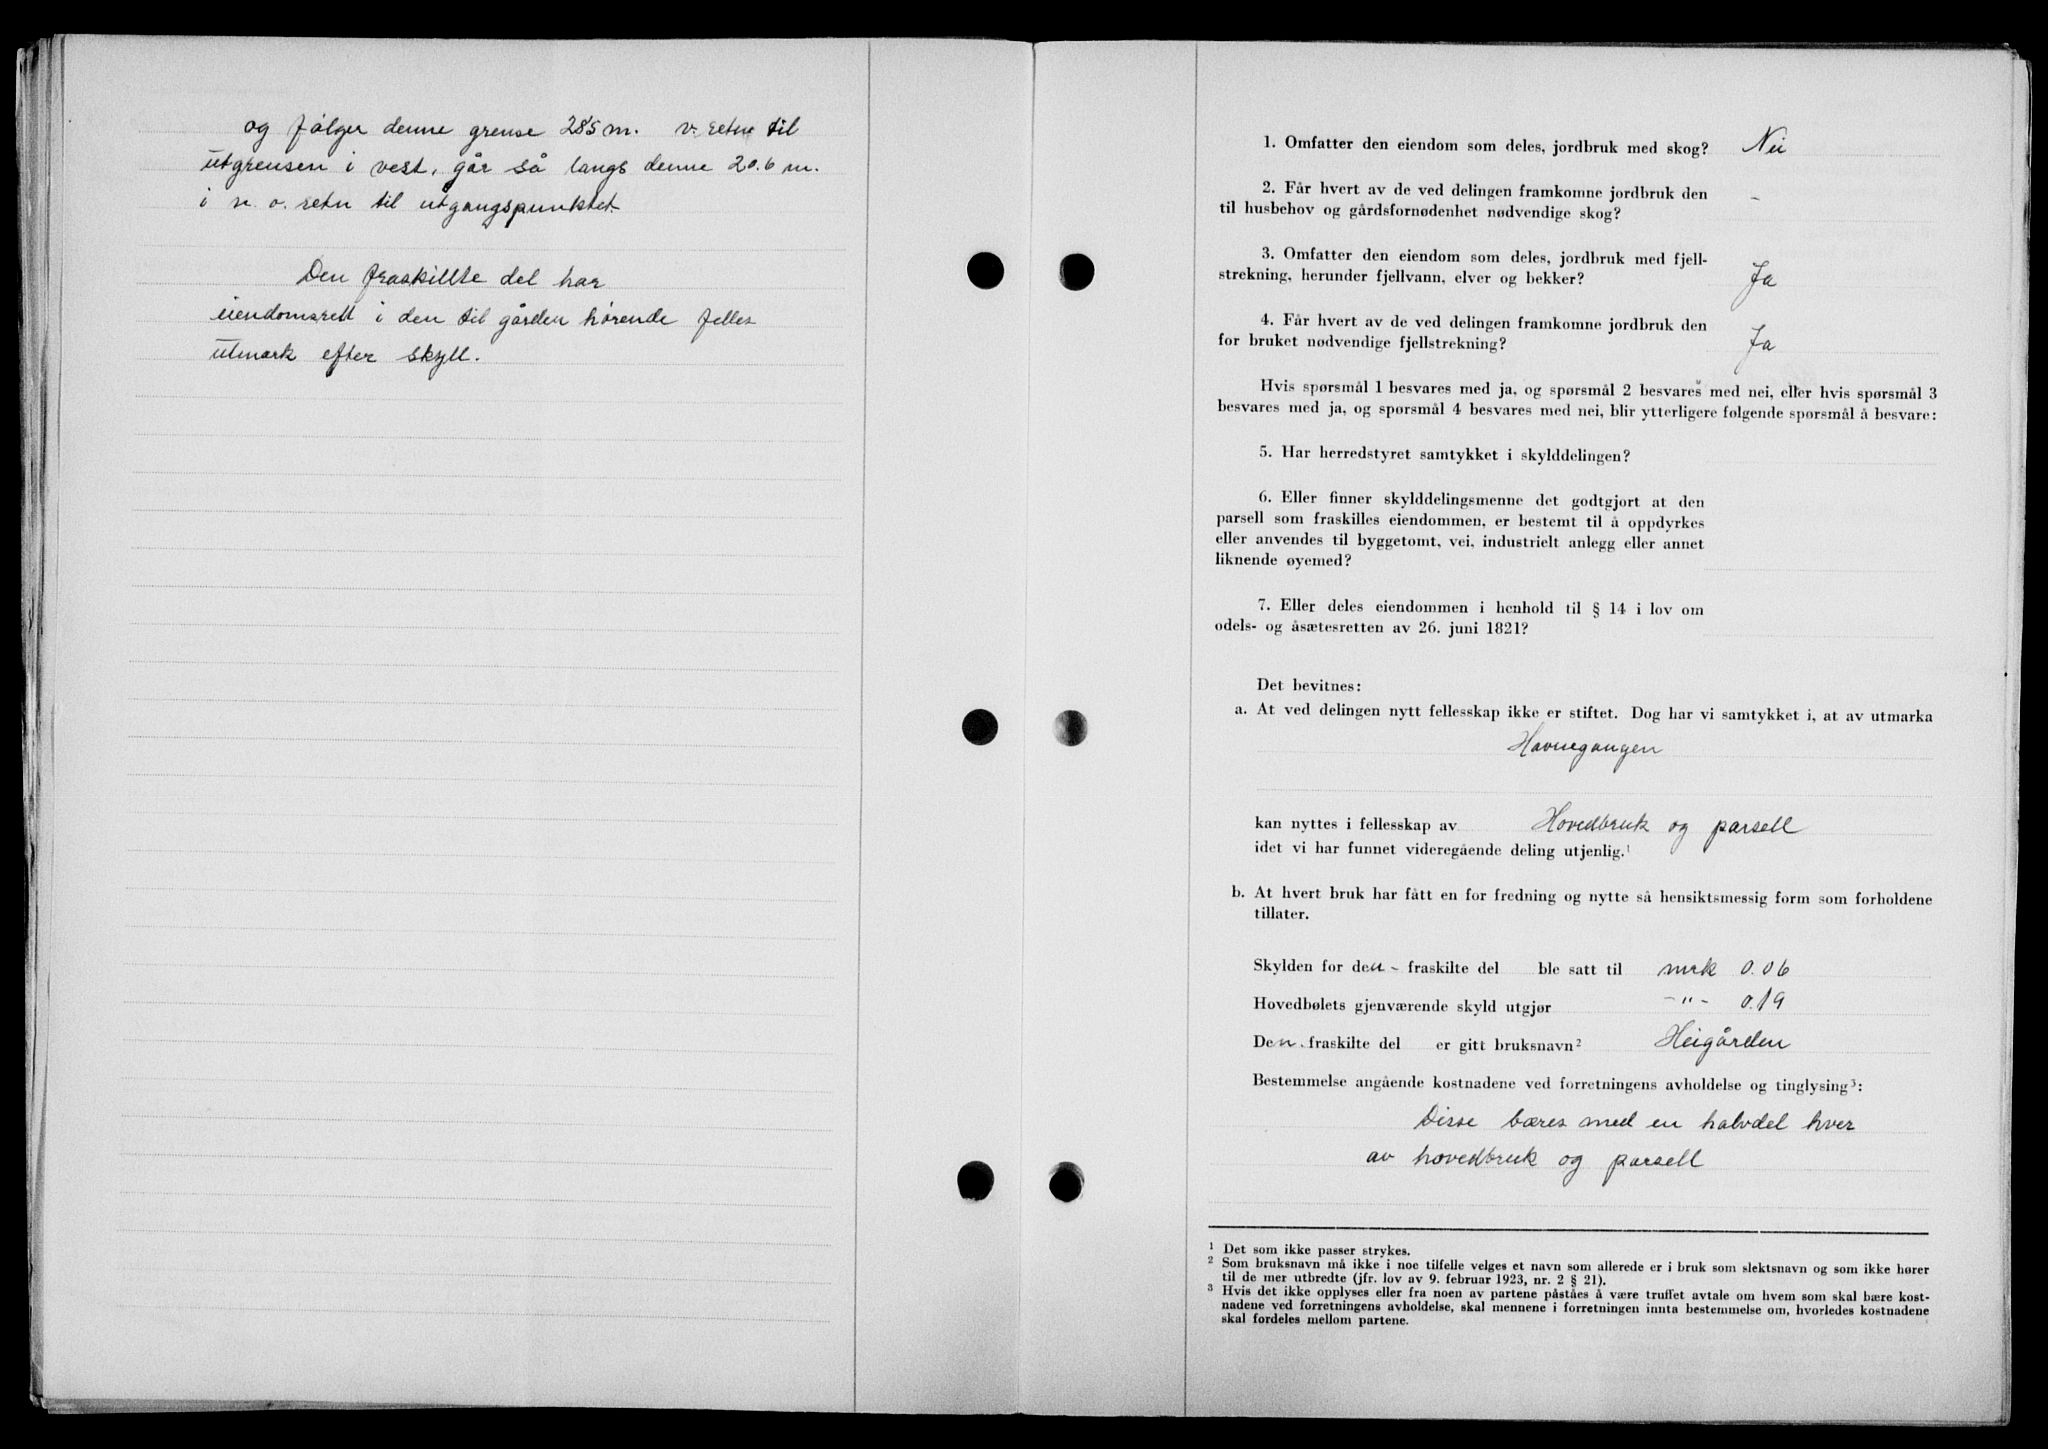 og følger denne grense 285 m. v. retn til
utgrensen i vest, går så langs denne 20.6 m.
i n. o. retn til utgangspunktet.
Den fraskillte del har
eiendomsrett i den til gården hørende felles
utmark efter skyll.
1. Omfatter den eiendom som deles, jordbruk med skog? Nei
2. Får hvert av de ved delingen framkomne jordbruk den
til husbehov og gårdsfornødenhet nødvendige skog? -
3. Omfatter den eiendom som deles, jordbruk med fjell-
strekning, herunder fjellvann, elver og bekker? Ja
4. Får hvert av de ved delingen framkomne jordbruk den
for bruket nødvendige fjellstrekning? Ja
Hvis spørsmål 1 besvares med ja, og spørsmål 2 besvares med nei, eller hvis spørsmål 3
besvares med ja, og spørsmål 4 besvares med nei, blir ytterligere følgende spørsmål å besvare:
5. Har herredstyret samtykket i skylddelingen?
6. Eller finner skylddelingsmenne det godtgjort at den
parsell som fraskilles eiendommen, er bestemt til å oppdyrkes
eller anvendes til byggetomt, vei, industrielt anlegg eller annet
liknende øyemed?
7. Eller deles eiendommen i henhold til § 14 i lov om
odels- og åsætesretten av 26. juni 1821?
Det bevitnes:
a. At ved delingen nytt fellesskap ikke er stiftet. Dog har vi samtykket i, at av utmarka
Havnegangen
kan nyttes i fellesskap av Hovedbruk og parsell
idet vi har funnet videregående deling utjenlig.¹
b. At hvert bruk har fått en for fredning og nytte så hensiktsmessig form som forholdene
tillater.
Skylden for den - fraskilte del ble satt til mrk 0.06
Hovedbølets gjenværende skyld utgjør -"- 0.19
Den fraskilte del er gitt bruksnavn² Heigården
Bestemmelse angående kostnadene ved forretningens avholdelse og tinglysing³:
Disse bæres med en halvdel hver
av hovedbruk og parsell
¹ Det som ikke passer strykes.
² Som bruksnavn må ikke i noe tilfelle velges et navn som allerede er i bruk som slektsnavn og som ikke hører
til de mer utbredte (jfr. lov av 9. februar 1923, nr. 2 § 21).
³ Hvis det ikke opplyses eller fra noen av partene påståes å være truffet avtale om hvem som skal bære kost-
nadene ved forretningens avholdelse, skal mennene i forretningen innta bestemmelse om, hvorledes kostnadene
skal fordeles mellom partene.